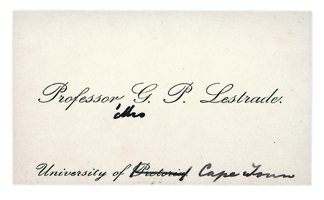 Professor G. P. Lestrade.
& Mrs
University of Pretoria Cape Town